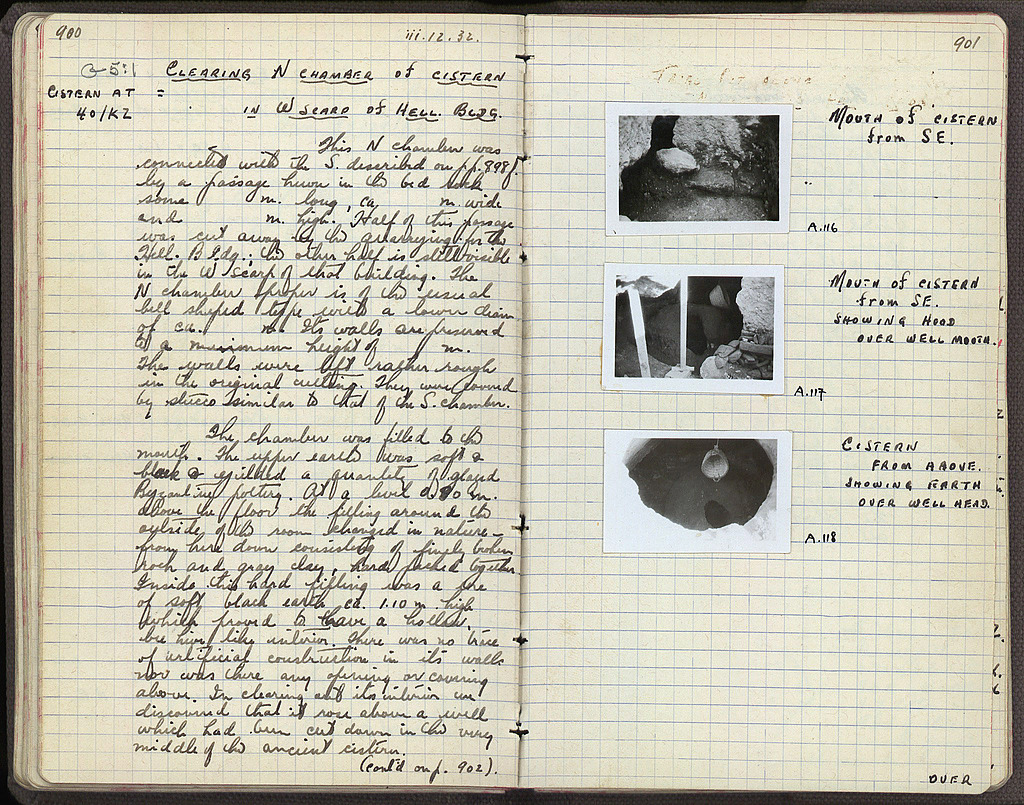 900
iii.12.32.
G 5:1
CLEARING N CHAMBER OF CISTERN
CISTERN AT =
40/KZ
IN W SCARP OF HELL. BLDG.
This N chamber was
connected with the S. described on p. 898 f.
by a passage hewn in the bed rock
some m. long, ca. m. wide
and m. high. Half of this passage
was cut away by the quarrying for the
Hell. Bldg.; the other half is still visible
in the W scarp of that building. The
N chamber proper is of the usual
bell shaped type with a lower diam.
of ca. m. Its walls are preserved
to a maximum height of m.
The walls were left rather rough
in the original cutting. They were covered
by stucco similar to that of the S. chamber.
The chamber was filled to the
mouth. The upper earth was soft &
black & yielded a quantity of glazed
Byzantine pottery. At a level m.
above the floor the filling around the
outside of the room changed in nature –
from here down consisting of finely broken
rock and gray clay, hard packed together.
Inside this hard filling was a
of soft black earth ca. 1.10 m. high
which proved to have a hollow,
bee hive like interior. There was no trace
of artificial construction in its walls
nor was there any opening or covering
above. In clearing out its interior we
discovered that it rose above a well
which had been cut down in the very
middle of the ancient cistern.
(cont'd on p. 902).
901
MOUTH OF CISTERN
from SE.
A.116
MOUTH OF CISTERN
from SE.
SHOWING HOOD
OVER WELL MOUTH.
A.117
CISTERN
FROM ABOVE.
SHOWING EARTH
OVER WELL HEAD.
A.118
OVER